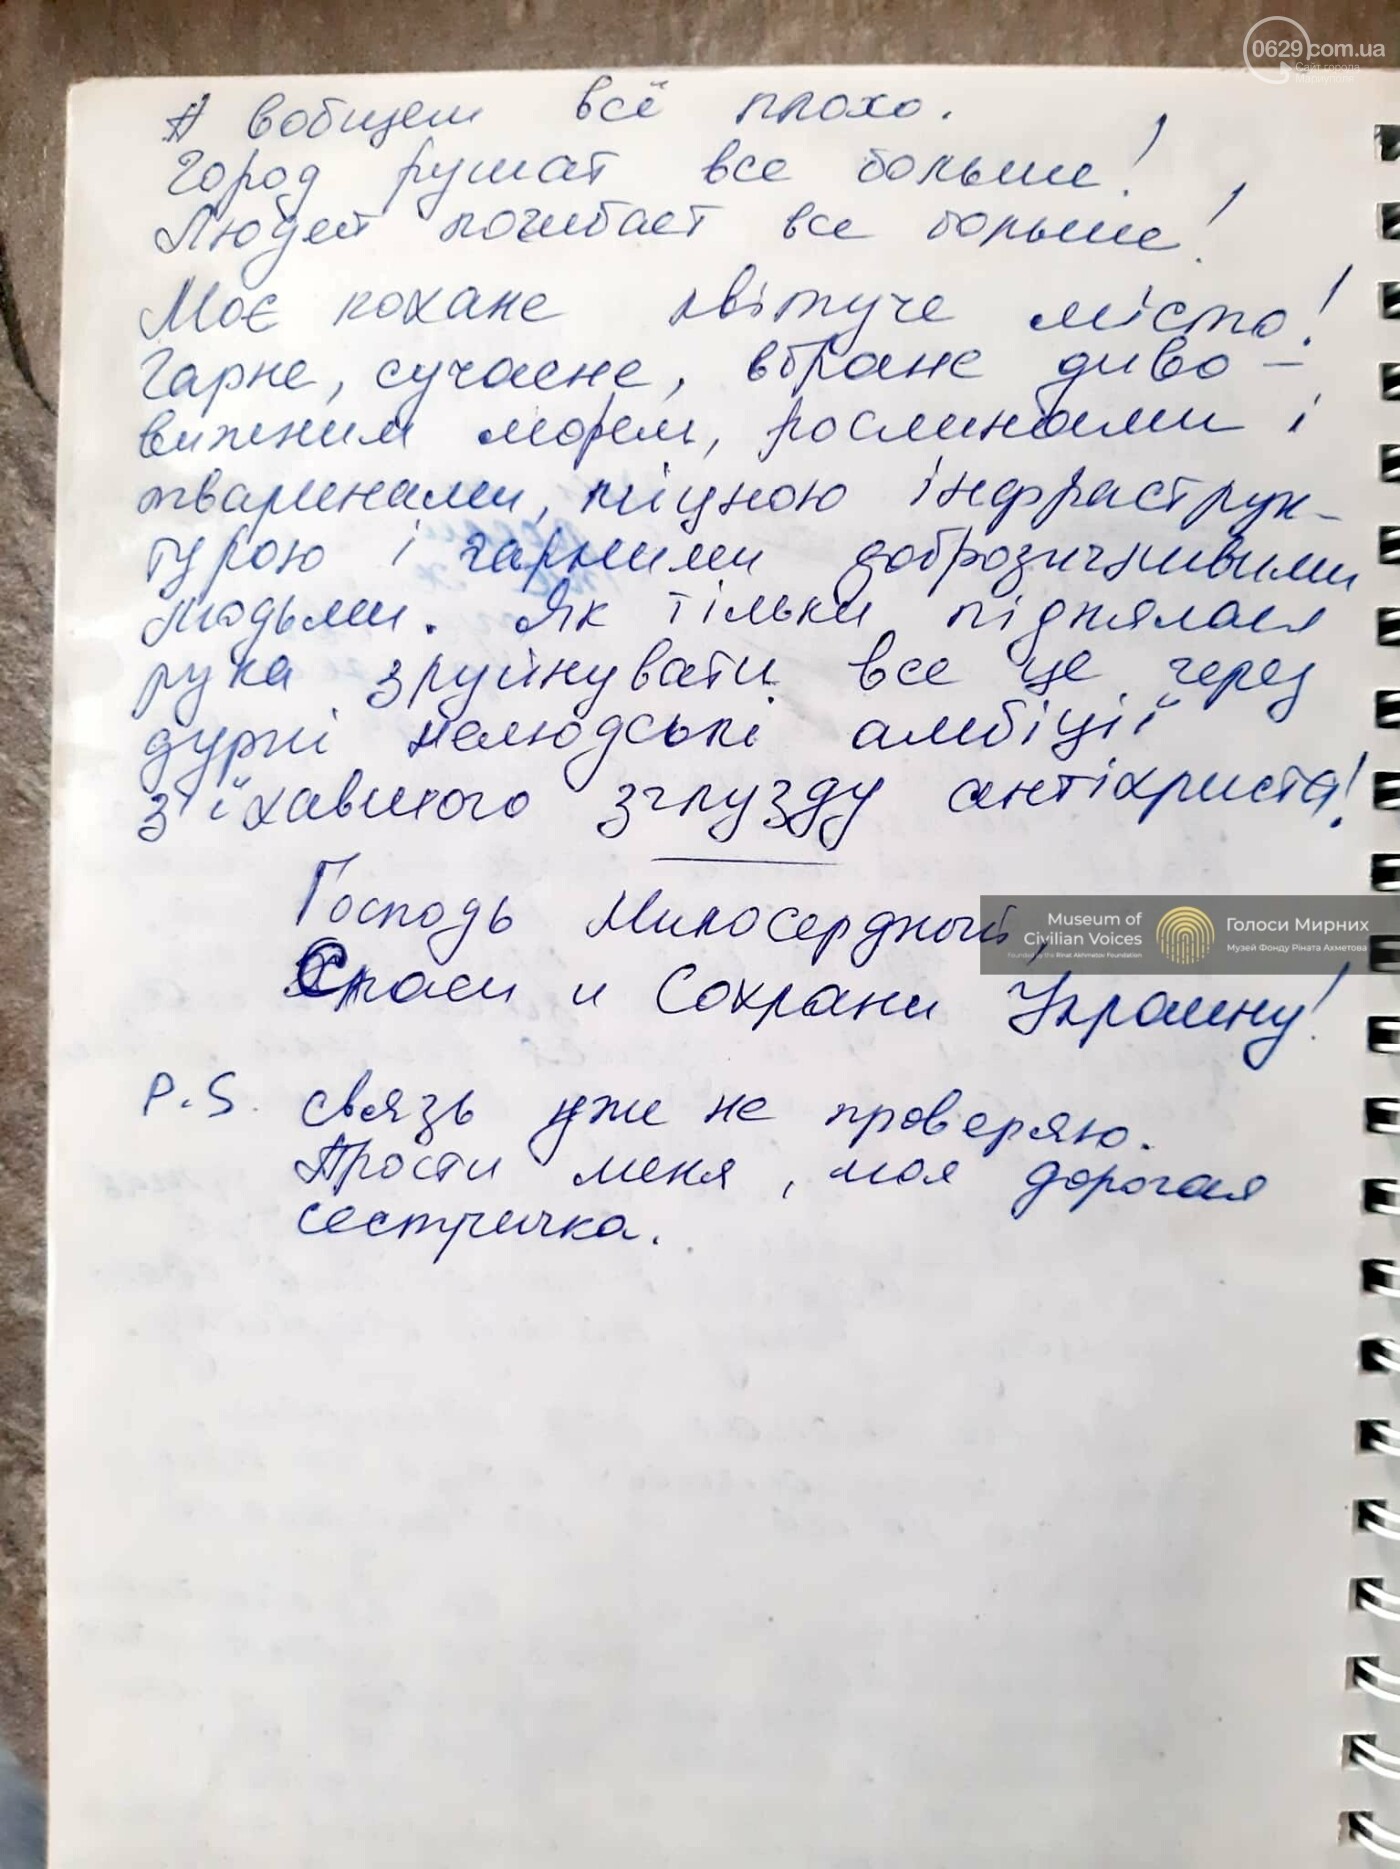 0629.com.ua
Сайт города
Мариуполя
А вобщем всё плохо.
Город рушат все больше!
Людей погибает все больше!
Моє кохане квітуче місто!
Гарне, сучасне, вбране диво-
вижним морем, рослинами і
тваринами, міцною інфраструк-
турою і гарними доброзичливими
людьми. Як тільки піднялася
рука зруйнувати все це через
дурні нелюдські амбіції
з'їхавшого зглузду антіхриста!
Господь Милосердный,
Спаси и Сохрани Украину!
Museum of
Civilian Voices
Founded by the Rinat Akhmetov Foundation
Голоси Мирних
Музей Фонду Ріната Ахметова
P.S. связь уже не проверяю.
Прости меня, моя дорогая
сестричка.